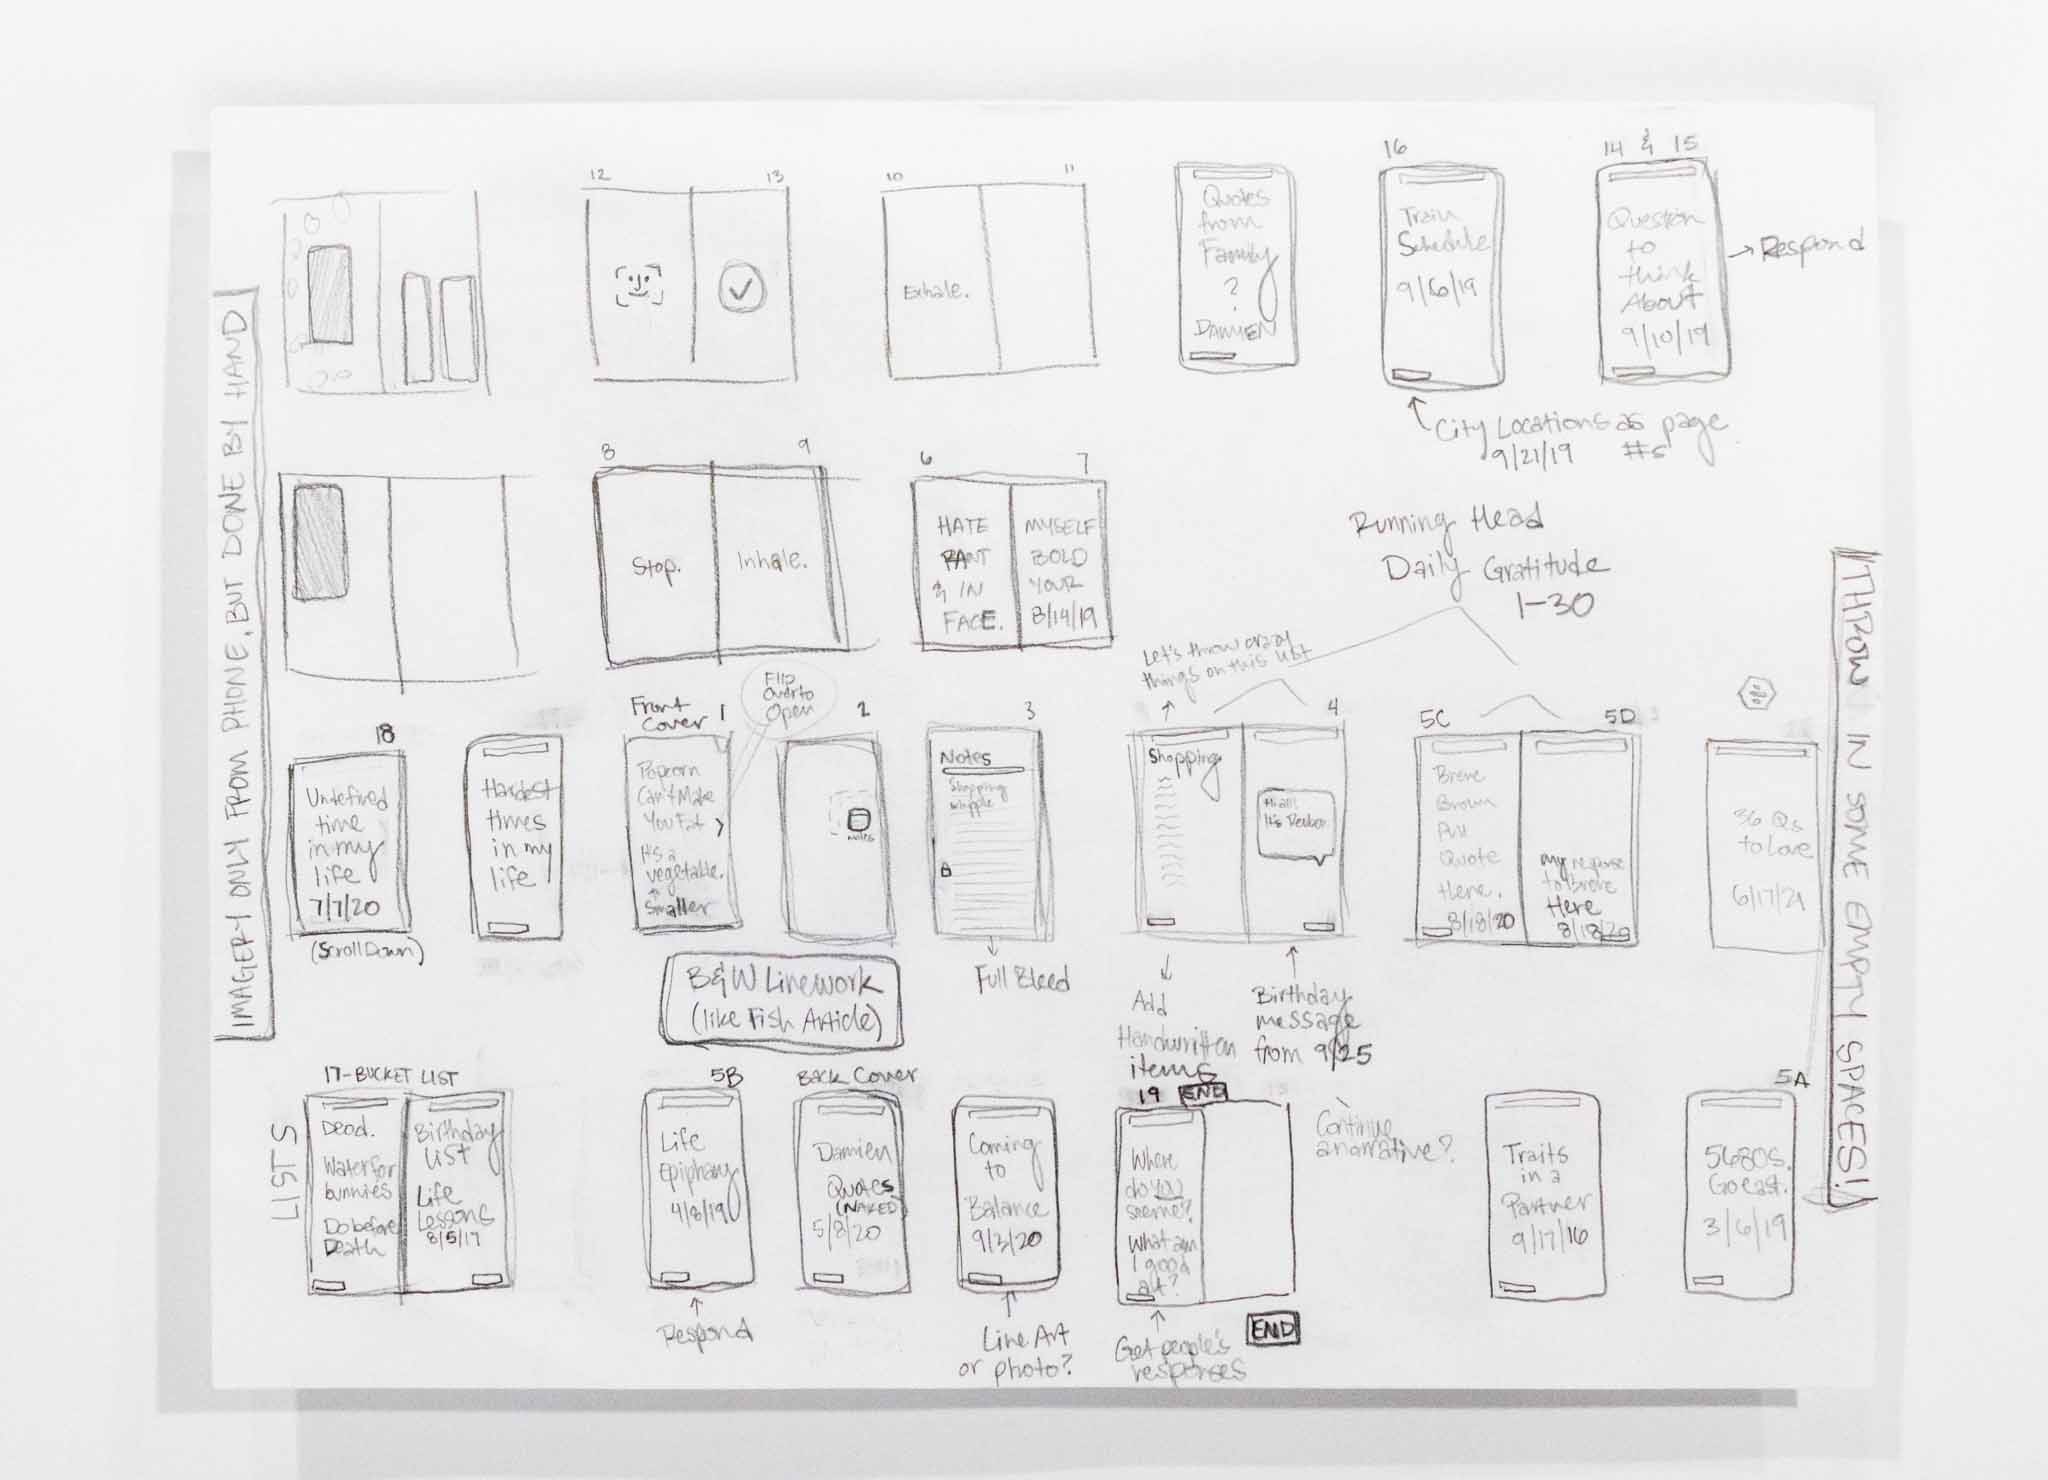 IMAGERY ONLY FROM PHONE, BUT DONE BY HAND
12
13
10
11
Exhale.
Quotes
from
Family
?
DAMIEN
16
Train
Schedule
City Locations as page
9/21/19 #s
14 & 15
Question
to
think
About
9/10/19
Respond
8
9
Stop.
Inhale.
6
7
HATE
RANT
& IN
FACE.
MYSELF
BOLD
YOUR
8/14/19
Running Head
Daily Gratitude
1-30
THROW IN SOME EMPTY SPACES!
18
Undefined
time
in my
life
7/7/20
(Scroll Down)
Hardest
times
in my
life
Front
Cover 1
Flip
Over to
Open
Popcorn
Can't Make
You Fat
It's a
vegetable.
Smaller
2
Notes
3
Notes
Shopping
Full Bleed
Let's throw crazy
things on this list
4
Shopping
Hi all!
It's Reuben
Add
Handwritten
items
Birthday
message
from 9/25
5C
5D
Brene
Brown
Pull
Quote
Here.
8/18/20
My response
to Brene
Here
8/18/20
36 Qs
to Love
6/17/21
B&W Linework
(like Fish Article)
LISTS
17-BUCKET LIST
Dead.
Water for
bunnies
Do before
Death
Birthday
List
Life
Lessons
8/5/17
5B
Life
Epiphany
4/8/19
Respond
Back Cover
Damien
Quotes
(NAKED)
5/8/20
Coming
to
Balance
9/2/20
Line Art
or photo?
19 END
Where
do YOU
see me?
What am
I good
at?
Get people's
responses
END
Continue
a narrative?
Traits
in a
Partner
9/17/16
5A
5680S.
Go east.
3/6/19